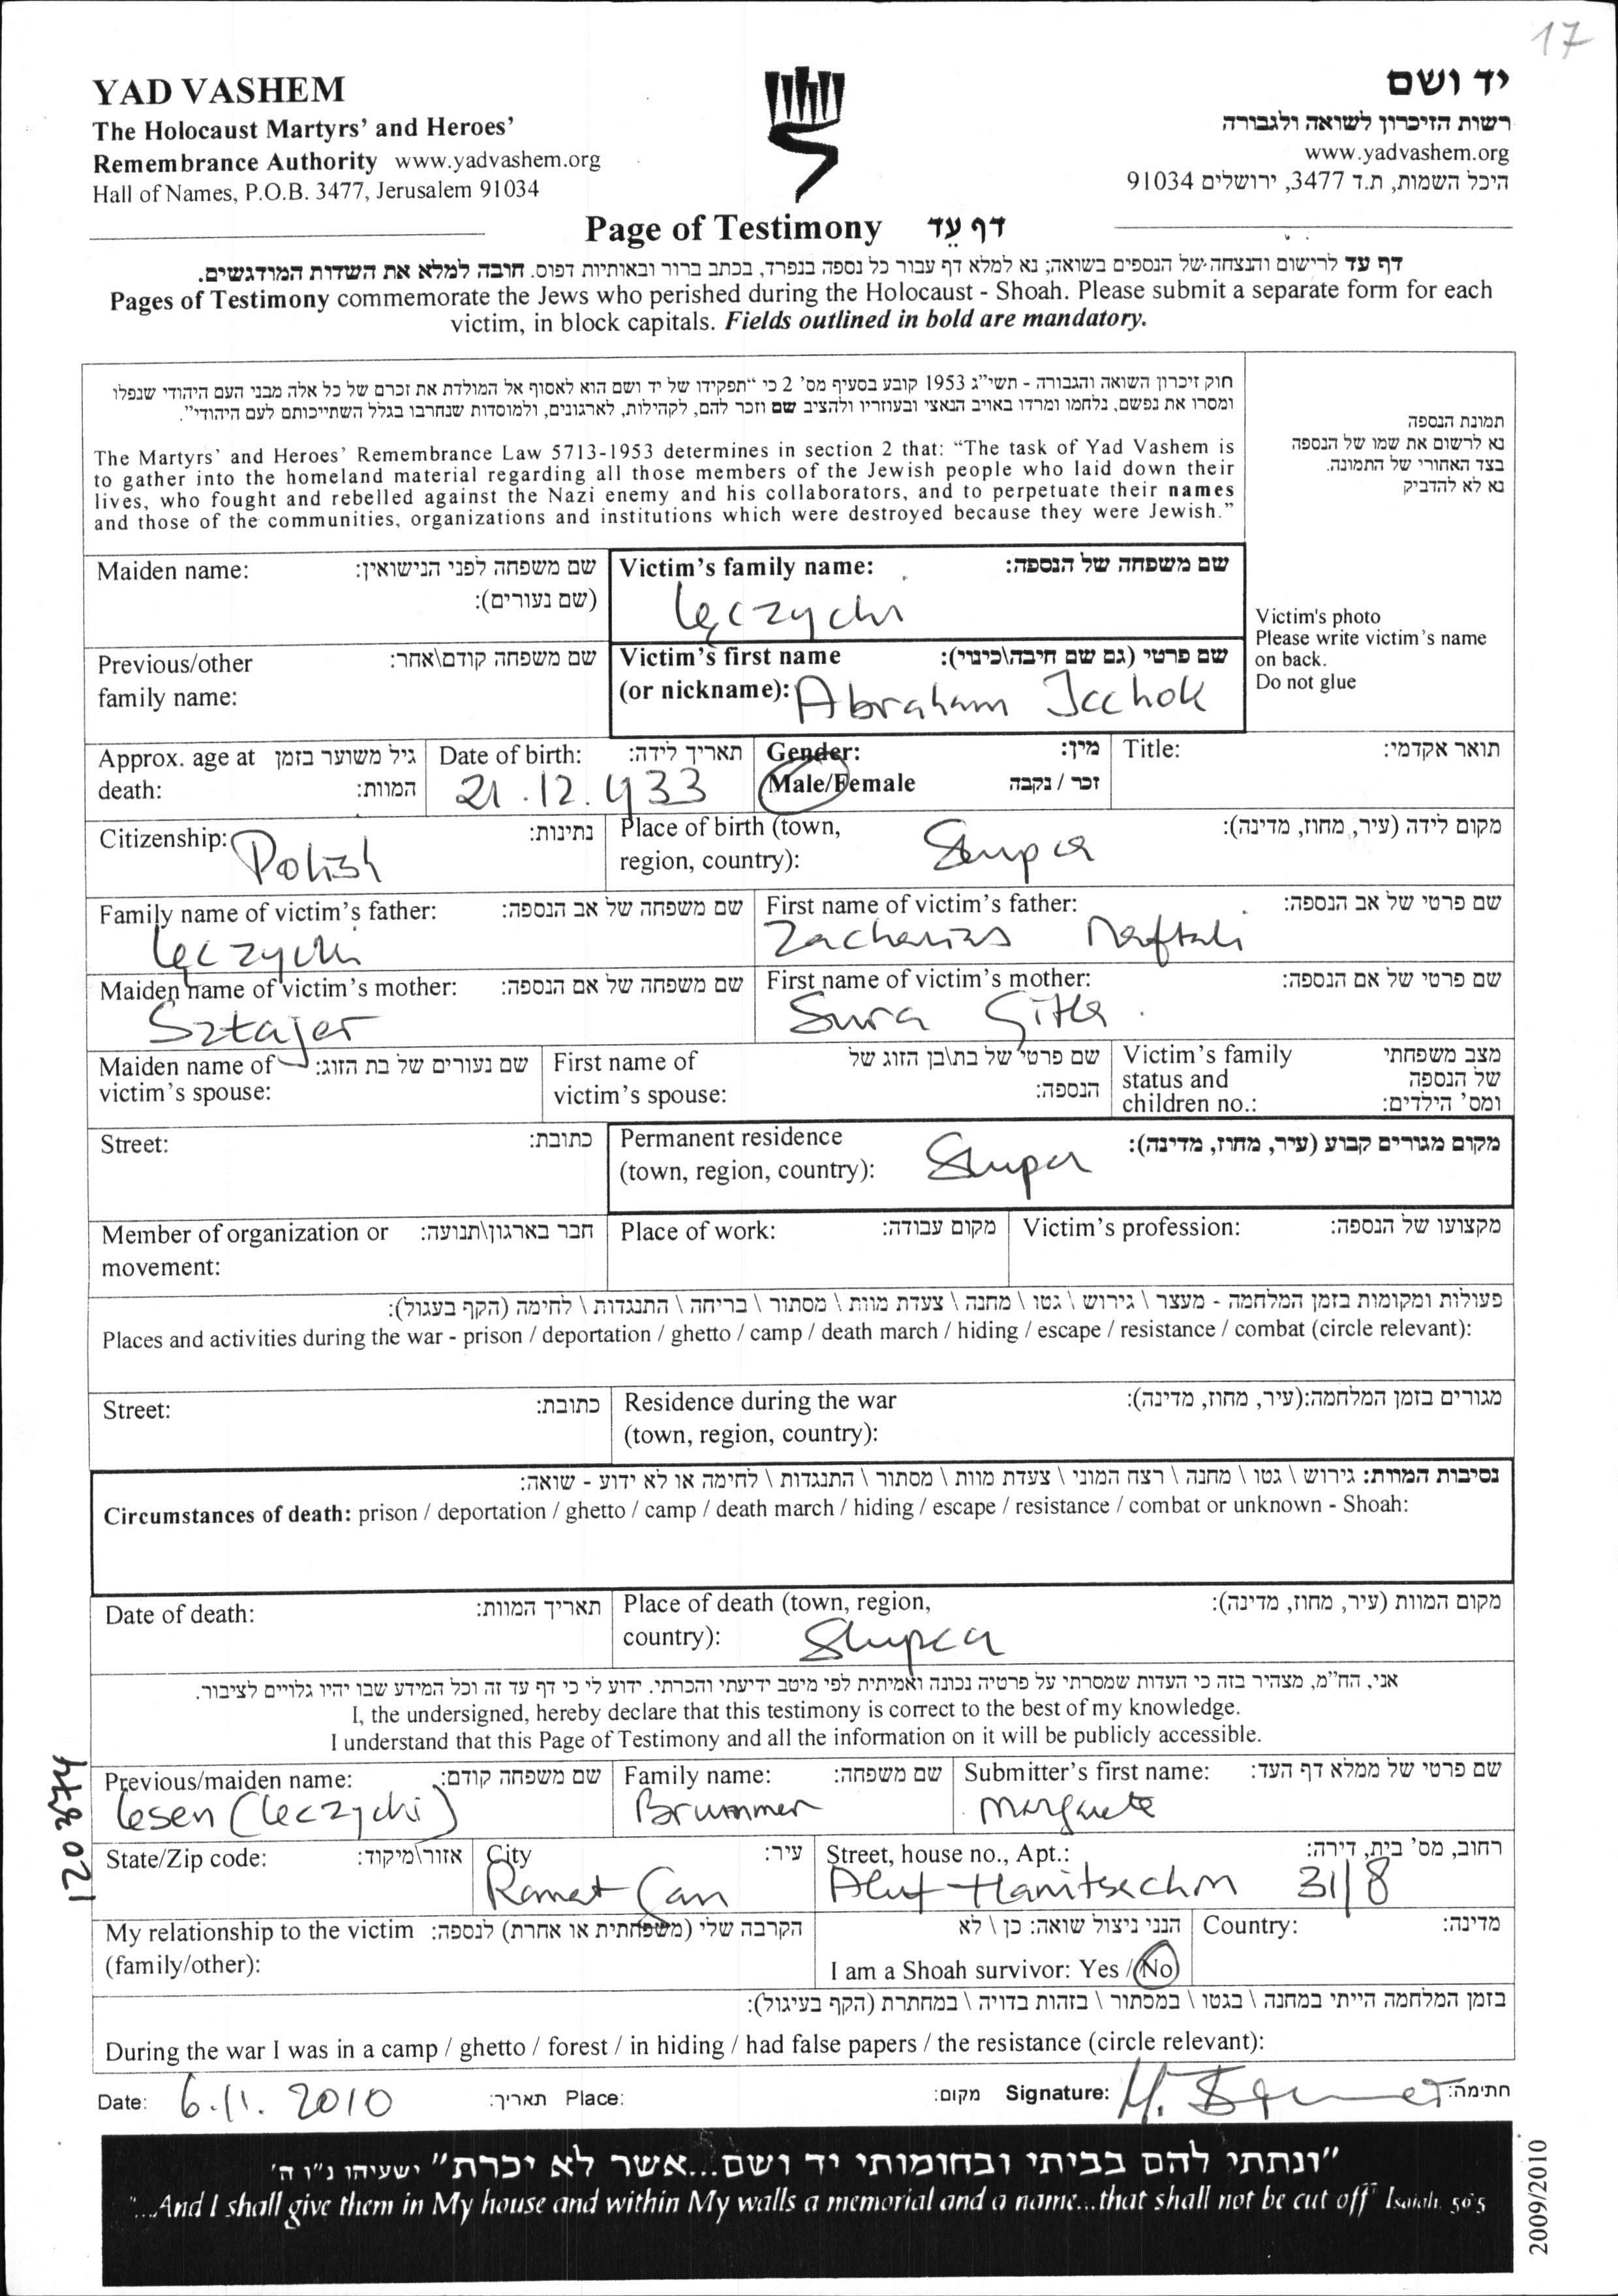 17
YAD VASHEM
יד ושם
The Holocaust Martyrs' and Heroes'
רשות הזיכרון לשואה ולגבורה
Remembrance Authority www.yadvashem.org
www.yadvashem.org
Hall of Names, P.O.B. 3477, Jerusalem 91034
היכל השמות, ת.ד 3477, ירושלים 91034
Page of Testimony דף עֵד
דף עד לרישום והנצחה של הנספים בשואה; נא למלא דף עבור כל נספה בנפרד, בכתב ברור ובאותיות דפוס. חובה למלא את השדות המודגשים.
Pages of Testimony commemorate the Jews who perished during the Holocaust - Shoah. Please submit a separate form for each
victim, in block capitals. Fields outlined in bold are mandatory.
חוק זיכרון השואה והגבורה - תשי"ג 1953 קובע בסעיף מס' 2 כי "תפקידו של יד ושם הוא לאסוף אל המולדת את זכרם של כל אלה מבני העם היהודי שנפלו
ומסרו את נפשם, נלחמו ומרדו באויב הנאצי ובעוזריו ולהציב שם וזכר להם, לקהילות, לארגונים, ולמוסדות שנחרבו בגלל השתייכותם לעם היהודי".
The Martyrs' and Heroes' Remembrance Law 5713-1953 determines in section 2 that: "The task of Yad Vashem is
to gather into the homeland material regarding all those members of the Jewish people who laid down their
lives, who fought and rebelled against the Nazi enemy and his collaborators, and to perpetuate their names
and those of the communities, organizations and institutions which were destroyed because they were Jewish."
תמונת הנספה
נא לרשום את שמו של הנספה
בצד האחורי של התמונה.
נא לא להדביק
Victim's photo
Please write victim's name
on back.
Do not glue
Maiden name: שם משפחה לפני הנישואין:
(שם נעורים):
Victim's family name: שם משפחה של הנספה:
Łęczycki
Previous/other שם משפחה קודם\אחר:
family name:
Victim's first name שם פרטי (גם שם חיבה\כינוי):
(or nickname): Abraham Icchok
Approx. age at גיל משוער בזמן
death: המוות:
Date of birth: תאריך לידה:
21.12.1933
Gender: מין:
Male/Female זכר / נקבה
Title: תואר אקדמי:
Citizenship: נתינות:
Polish
Place of birth (town, מקום לידה (עיר, מחוז, מדינה):
region, country): Słupca
Family name of victim's father: שם משפחה של אב הנספה:
Łęczycki
First name of victim's father: שם פרטי של אב הנספה:
Zacharias Naftali
Maiden name of victim's mother: שם משפחה של אם הנספה:
Sztajer
First name of victim's mother: שם פרטי של אם הנספה:
Sura Gitla
Maiden name of שם נעורים של בת הזוג:
victim's spouse:
First name of שם פרטי של בת\בן הזוג של
victim's spouse: הנספה:
Victim's family מצב משפחתי
status and של הנספה
children no.: ומס' הילדים:
Street: כתובת:
Permanent residence מקום מגורים קבוע (עיר, מחוז, מדינה):
(town, region, country): Słupca
Member of organization or חבר בארגון\תנועה:
movement:
Place of work: מקום עבודה:
Victim's profession: מקצועו של הנספה:
פעולות ומקומות בזמן המלחמה - מעצר \ גירוש \ גטו \ מחנה \ צעדת מוות \ מסתור \ בריחה \ התנגדות \ לחימה (הקף בעגול):
Places and activities during the war - prison / deportation / ghetto / camp / death march / hiding / escape / resistance / combat (circle relevant):
Street: כתובת:
Residence during the war מגורים בזמן המלחמה:(עיר, מחוז, מדינה):
(town, region, country):
נסיבות המוות: גירוש \ גטו \ מחנה \ רצח המוני \ צעדת מוות \ מסתור \ התנגדות \ לחימה או לא ידוע - שואה:
Circumstances of death: prison / deportation / ghetto / camp / death march / hiding / escape / resistance / combat or unknown - Shoah:
Date of death: תאריך המוות:
Place of death (town, region, מקום המוות (עיר, מחוז, מדינה):
country): Słupca
אני, הח"מ, מצהיר בזה כי העדות שמסרתי על פרטיה נכונה ואמיתית לפי מיטב ידיעתי והכרתי. ידוע לי כי דף עד זה וכל המידע שבו יהיו גלויים לציבור.
I, the undersigned, hereby declare that this testimony is correct to the best of my knowledge.
I understand that this Page of Testimony and all the information on it will be publicly accessible.
Previous/maiden name: שם משפחה קודם:
Lesen (Leczycki)
Family name: שם משפחה:
Brummer
Submitter's first name: שם פרטי של ממלא דף העד:
Margarete
State/Zip code: אזור\מיקוד:
City עיר:
Ramat Gan
Street, house no., Apt.: רחוב, מס' בית, דירה:
Aluf Hanitsachon 31/8
My relationship to the victim הקרבה שלי (משפחתית או אחרת) לנספה:
(family/other):
הנני ניצול שואה: כן \ לא
I am a Shoah survivor: Yes / No
Country: מדינה:
בזמן המלחמה הייתי במחנה \ בגטו \ במסתור \ בזהות בדויה \ במחתרת (הקף בעיגול):
During the war I was in a camp / ghetto / forest / in hiding / had false papers / the resistance (circle relevant):
Date: 6.11.2010 תאריך: Place: מקום: Signature: חתימה:
"ונתתי להם בביתי ובחומותי יד ושם...אשר לא יכרת" ישעיהו נ"ו ה'
"...And I shall give them in My house and within My walls a memorial and a name...that shall not be cut off" Isaiah. 56'5
2009/2010